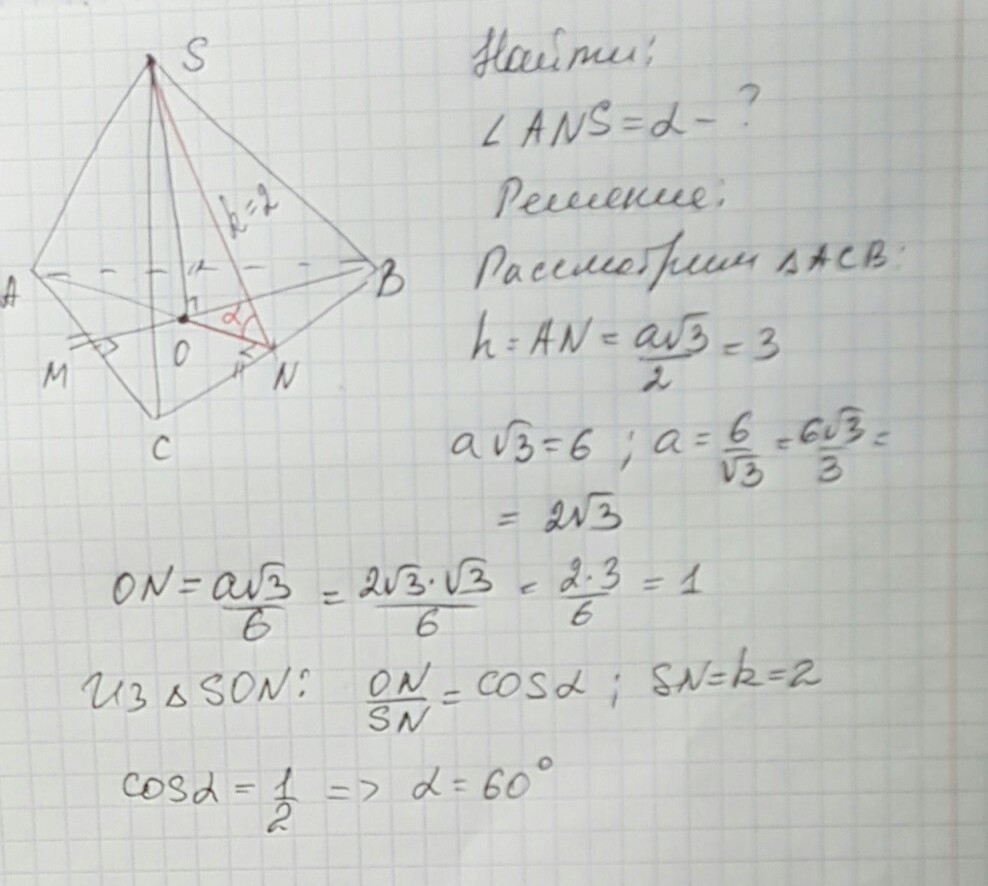 S
k=2
A
B
α
O
M
N
C
Найти:
∠ANS=α-?
Решение:
Рассмотрим ΔACB:
h=AN=a√3/2=3
a√3=6; a=6/√3=6√3/3=
=2√3
ON=a√3/6=2√3·√3/6=2·3/6=1
Из ΔSON: ON/SN=cosα; SN=k=2
cosα=1/2 => α=60°